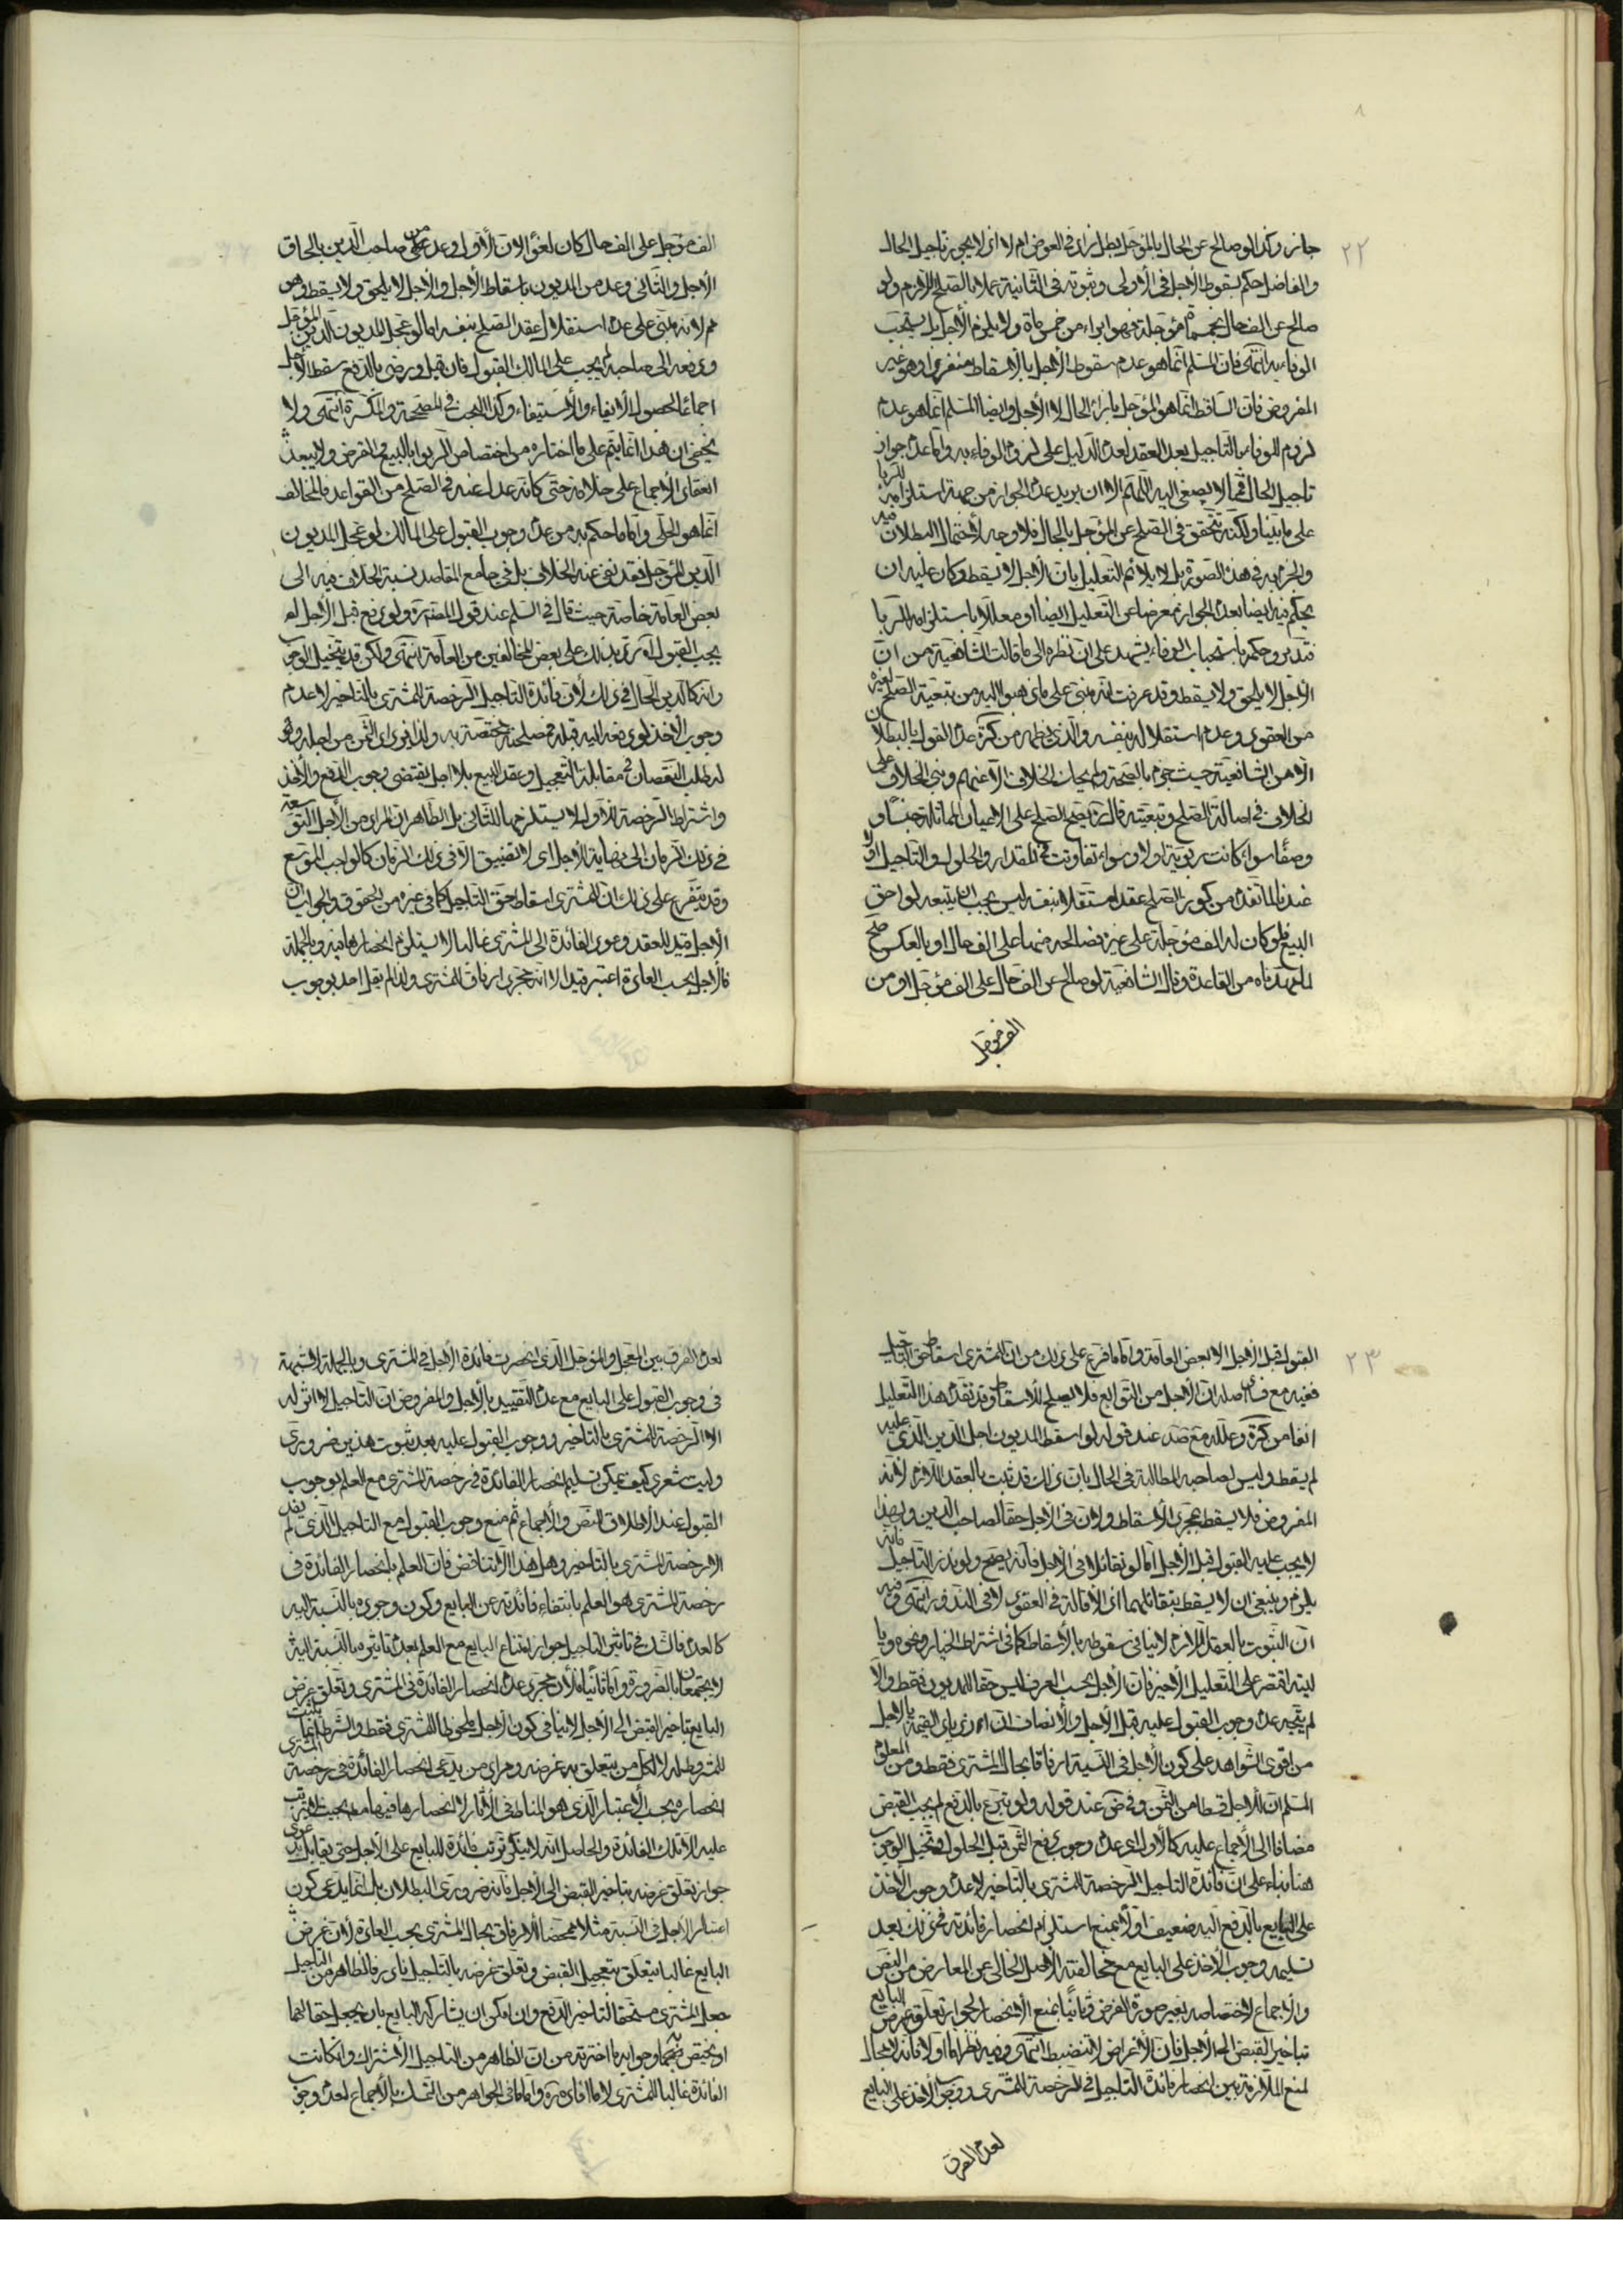 ٢٢
جايز وكذا لو صالح عن الحال بالمؤجل بطل زاد في العوض ام لا اذ لا يجوز تاجيل الحال
والفاضل حكم بسقوط الاجل في الاولى وثبوته في الثانية عملا بالصلح اللازم ولو
صالح عن الف حال بخمسمائة مؤجلة فهو ابراء من خمسمائة ولا يلزم الاجل بل يستحب
الوفاء به انتهى فان المسلم انما هو عدم سقوط الاجل بالاسقاط منفردا وهو غير
المفروض فان الساقط انما هو المؤجل بازاء الحال لا الاجل وايضا المسلم انما هو عدم
لزوم الوفاء بالتاجيل بعد العقد لعدم الدليل على لزوم الوفاء به واما عدم جواز
تاجيل الحال فمما لا يصغى اليه اللهم الا ان يريد عدم الجواز من جهة استلزامه للربا
على ما بينا ولكنه يتحقق في الصلح عن المؤجل بالحال فلا وجه لاحتمال البطلان فيه
والجزم به في هذه الصورة بل لا يلائم التعليل بان الاجل لا يسقط وكان عليه ان
يحكم فيه ايضا بعدم الجواز معرضا عن التعليل ايضا او معللا باستلزامه الربا
فتدبر وحكمه باستحباب الوفاء يشهد على ان نظره الى ما قالت الشافعية من ان
الاجل لا يلحق ولا يسقط وقد عرفت انه مبني على ما ذهبوا اليه من تبعية الصلح لغيره
من العقود وعدم استقلاله بنفسه والذي يظهر من كرة عدم القول بالبطلان
الا من الشافعية حيث جزم بالصحة ولم يحك الخلاف الا عنهم وبنى الخلاف على
الخلاف في اصالة الصلح وتبعيته قال ره يصح الصلح على الاعيان المماثلة جنسا و
وصفا سواء كانت ربوية او لا وسواء تفاوتت في المقدار والحلول والتاجيل او لا
عندنا لما تقدم من كون الصلح عقدا مستقلا بنفسه ليس يجب ان يتبعه لواحق
البيع فلو كان له الف مؤجلة على غيره فصالحه منها على الف حال او بالعكس صح
لما مهدناه من القاعدة وقال الشافعية لو صالح عن الف حال على الف مؤجل او من
الف مؤجل
الف مؤجل على الف حال كان لغوا لان الاول وعد من صاحب الدين بالحاق
الاجل والثاني وعد من المديون باسقاط الاجل والاجل لا يلحق ولا يسقط وهو
م لانه مبني على عدم استقلال عقد الصلح بنفسه اما لو عجل المديون الدين المؤجل
ودفعه الى صاحبه لم يجب على المالك القبول فان قبل ورضي بالدفع سقط الاجل
اجماعا لحصول الايفاء والاستيفاء وكذا البحث في الصحيحة والمكسرة انتهى ولا
يخفى ان هذا انما يتم على ما اختاره من اختصاص الربوا بالبيع والقرض ولا يبعد
انعقاد الاجماع على خلافه حتى كانه عدل عنه في الصلح من القواعد فالمخالف
انما هو الحلي واما ما حكم به من عدم وجوب القبول على المالك لو عجل المديون
الدين المؤجل فقد نفي عنه الخلاف بل في جامع المقاصد نسبة الخلاف فيه الى
بعض العامة خاصة حيث قال في السلم عند قول المصنف ره ولو دفع قبل الاجل لم
يجب القبول اه رد بذلك على بعض المخالفين من العامة انتهى ولكن قد يتخيل الوجوب
وانه كالدين الحال في ذلك لان فائدة التاجيل الرخصة للمشتري بالتاخير لا عدم
وجوب الاخذ لو دفعه اليه قبله فمصلحته مختصة به ولذا يزداد الثمن من اجله وهو
له طلب النقصان في مقابلة التعجيل وعقد البيع بلا اجل يقتضي وجوب الدفع والاخذ
واشتراط الرخصة للاول لا يستلزمها للثاني بل الظاهر ان المراد من الاجل التوسعة
في ذلك الزمان الى نهاية الاجل اي لا تضييق الا في ذلك الزمان كالواجب الموسع
وقد يتفرع على ذلك ان للمشتري اسقاط حق التاجيل كما في غيره من الحقوق والجواب ان
الاجل قيد للعقد وعود الفائدة الى المشتري غالبا لا يستلزم انحصارها فيه وبالجملة
فالاجل بحسب العادة اعتبر قيدا لا انه مجرد ارفاق للمشتري ولذا لم يقل احد بوجوب
٢٣
القبول قبل الاجل الا بعض العامة واما ما فرع على ذلك من ان للمشتري اسقاط حق التاجيل
ففيه مع فساد اصله ان الاجل من التوابع فلا يصلح للاسقاط وقد تقدم هذا التعليل
انفا من كرة وعلله مع صد عند قوله لو اسقط المديون اجل الدين الذي عليه
لم يسقط وليس لصاحبه المطالبة في الحال بان ذلك قد ثبت بالعقد اللازم لانه
المفروض فلا يسقط بمجرد الاسقاط ولان في الاجل حقا لصاحب الدين ولهذا
لا يجب عليه القبول قبل الاجل اما لو تقايلا في الاجل فانه يصح ولو نذر التاجيل فانه
يلزم وينبغي ان لا يسقط بتقايلهما اذ الاقالة في العقود لا في النذور انتهى وفيه
ان الثبوت بالعقد اللازم لا ينافي سقوطه بالاسقاط كما في اشتراط الخيار ونحوه ويا
ليته اقتصر على التعليل الاخير فان الاجل بحسب العرف ليس حقا للمديون فقط والا
لم يتجه عدم وجوب القبول عليه قبل الاجل والانصاف ان ازدياد القيمة بالاجل
من اقوى الشواهد على كون الاجل في النسية ارفاقا بحال المشتري فقط ومن المعلوم
المسلم ان للاجل قسطا من الثمن وفي ض عند قوله ولو تبرع بالدفع لم يجب القبض
مضافا الى الاجماع عليه كالاول اي عدم وجوب دفع الثمن قبل الحلول وتخيل الوجوب
هنا بناء على ان فائدة التاجيل الرخصة للمشتري بالتاخير لا عدم وجوب الاخذ
على البايع بالدفع اليه ضعيف اولا بمنع استلزام انحصار فائدته في ذلك بعد
تسليمه وجوب الاخذ على البايع مع مخالفته الاصل الخالي عن المعارض من النص
والاجماع لاختصاصه بغير صورة الفرض وثانيا بمنع الانحصار لجواز تعلق غرض البايع
بتاخير القبض الى الاجل فان الاغراض لا تنضبط انتهى وفيه نظر اما اولا فانه لا مجال
لمنع الملازمة بين انحصار فائدة التاجيل في الرخصة للمشتري ووجوب الاخذ على البايع
لعدم الفرق
لعدم الفرق بين المعجل والمؤجل الذي انحصرت فائدة الاجل في المشتري وبالجملة لا شبهة
في وجوب القبول على البايع مع عدم التقييد بالاجل والمفروض ان التاجيل لا اثر له
الا الرخصة للمشتري بالتاخير ووجوب القبول عليه بعد ثبوت هذين ضروري
وليت شعري كيف يمكن تسليم انحصار الفائدة في رخصة المشتري مع العلم بوجوب
القبول عند الاطلاق النص والاجماع ثم منع وجوب القبول مع التاجيل الذي لم يفد
الا رخصة المشتري بالتاخير وهل هذا الا التناقض فان العلم بانحصار الفائدة في
رخصة المشتري هو العلم بانتفاء فائدته عن البايع وكون وجوده بالنسبة اليه
كالعدم فالشك في تاثير التاجيل جواز امتناع البايع مع العلم بعدم تاثيره بالنسبة اليه
لا يجتمعان بالضرورة واما ثانيا فلان مجرد عدم انحصار الفائدة في المشتري وتعلق غرض
البايع بتاخير القبض الى الاجل لا ينافي كون الاجل ملحوظا للمشتري فقط والشرط انما يثبت
للمشروط له لا لكل من يتعلق به غرضه ومراد من يدعي انحصار الفائدة في رخصة المشتري
انحصاره بحسب الاعتبار الذي هو المناط في الاثار لا انحصارها فيها
عليه الا تلك الفائدة والحاصل انه لا ينكر ترتب فائدة للبايع على الاجل حتى يقابل
جواز تعلق غرضه بتاخير القبض الى الاجل فانه ضروري البطلان بل انما يدعي كون
اعتبار الاجل في النسية مثلا متمحضا للارفاق بحال المشتري بحسب العادة لان غرض
البايع غالبا يتعلق بتعجيل القبض وتعلق غرضه بالتاجيل نادر فالظاهر من التاجيل
جعل المشتري مستحقا لتاخير الدفع وان امكن ان يشاركه البايع بان يجعل حقا لهما
او يختص بهما وجوابه ما اخترته من ان الظاهر من التاجيل الاشتراك وان كانت
الفائدة غالبا للمشتري لا ما افاده ره واما ما في الجواهر من التمسك بالاجماع لعدم وجوب